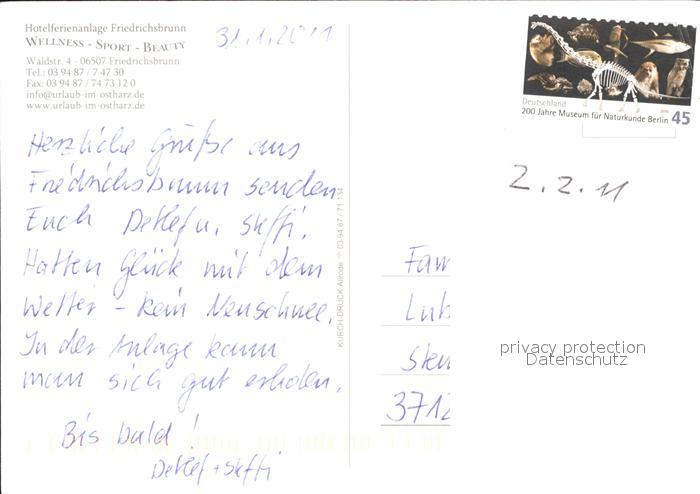 Hotelferienanlage Friedrichsbrunn
WELLNESS - SPORT - BEAUTY
Waldstr. 4 - 06507 Friedrichsbrunn
Tel.: 03 94 87 / 7 47 30
Fax: 03 94 87 / 74 73 12 0
info@urlaub-im-ostharz.de
www.urlaub-im-ostharz.de
31.1.2011
Herzliche Grüße aus
Friedrichsbrunn senden
Euch Detlef u. Steffi.
Hatten Glück mit dem
Wetter - kein Neuschnee.
In der Anlage kann
man sich gut erholen.
Bis bald!
Detlef + Steffi
KURCH-DRUCK Allrode 03 94 87 / 71 134
Deutschland
200 Jahre Museum für Naturkunde Berlin 45
2.2.11
Fam
Lub
3712
privacy protection
Datenschutz